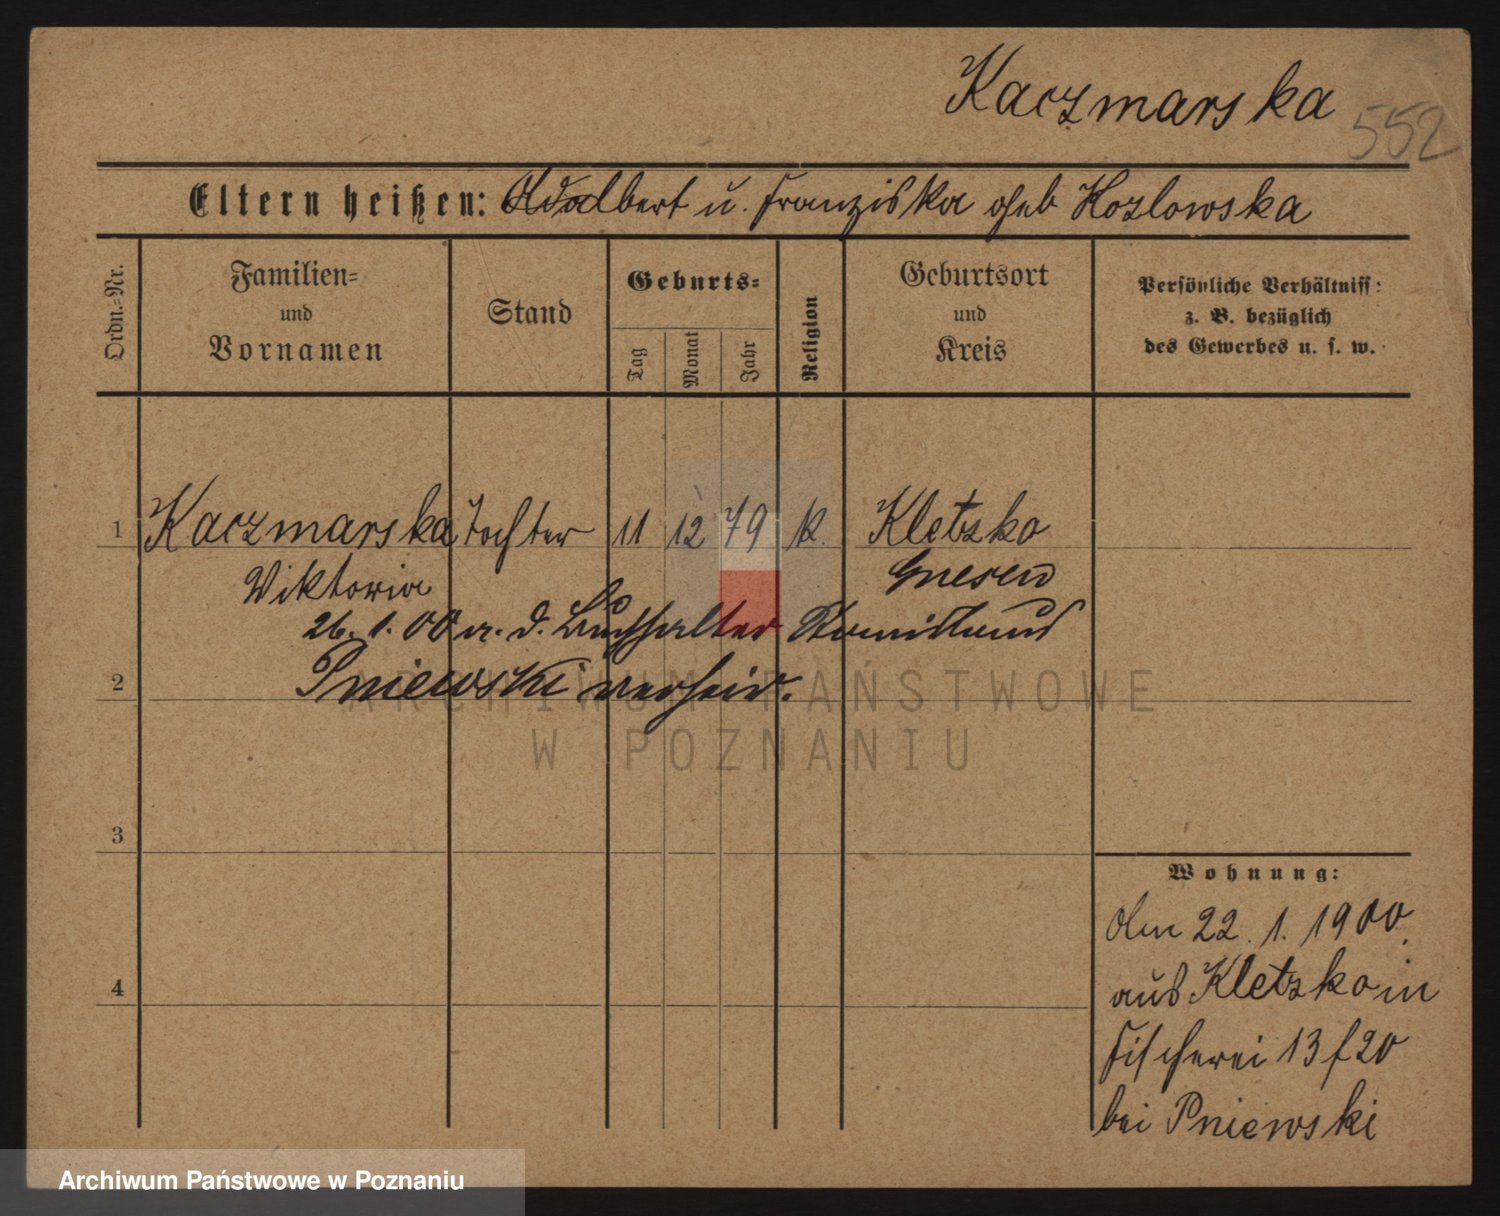 Kaczmarska
552
Eltern heißen: Adalbert u. Franziska geb Kozlowska
Ordn.=Nr.
Familien=
und
Vornamen
Stand
Geburts=
Tag
Monat
Jahr
Religion
Geburtsort
und
Kreis
Persönliche Verhältniss:
z. B. bezüglich
des Gewerbes u. s. w.
1 Kaczmarska Tochter 11 12 79 k. Kletzko
Viktoria Gnesen
26. 1. 00 m. d. Buchhalter
2 Pniewski verheir.
3
4
Wohnung:
Am 22. 1. 1900.
aus Kletzko in
Fischerei 13 f 20
bei Pniewski
ARCHIWUM PAŃSTWOWE
W POZNANIU
Archiwum Państwowe w Poznaniu